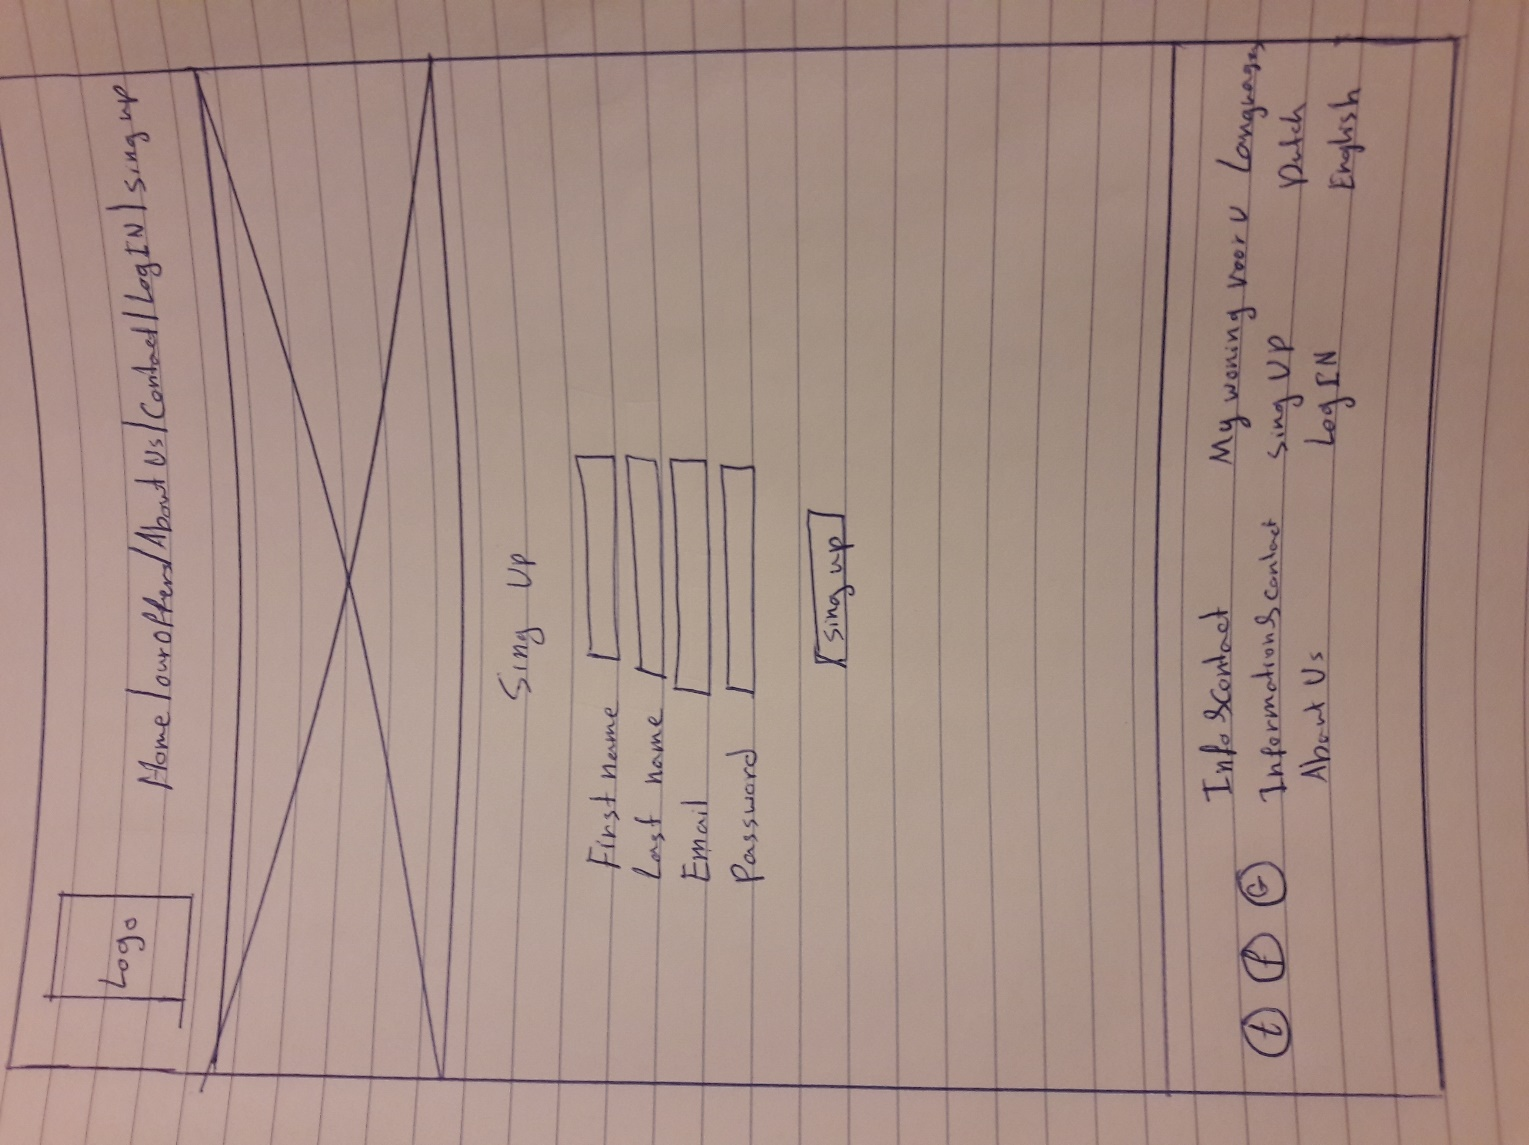 Logo
Home / our offers / About Us / Contact / Log IN / sing up
Sing Up
First name
Last name
Email
Password
sing up
t f G
Info & contact
Information & contact
About Us
My woning voor U
sing UP
Log IN
Languages
Dutch
English